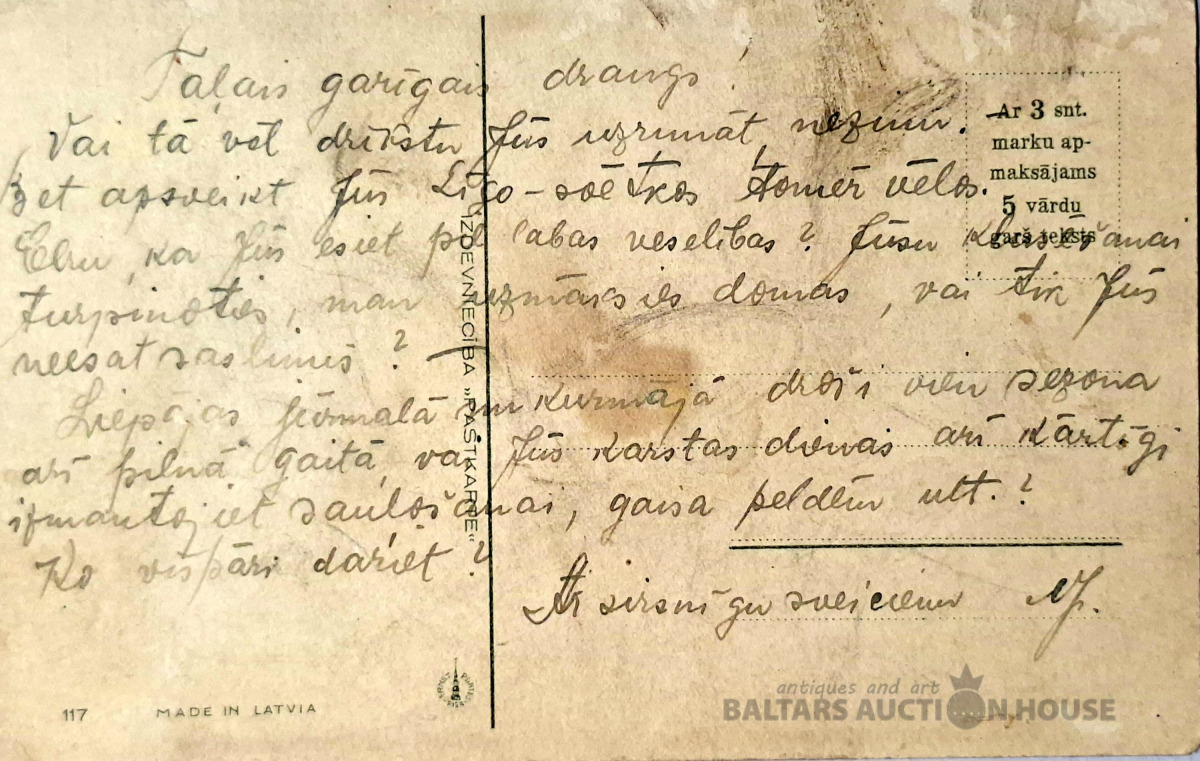 Taļais garīgais draugs!
Vai tā vēl drīkstu Jūs uzrunāt, nezinu.
Bet apsveikt Jūs Līgo-svētkos tomēr vēlos.
Ceru, ka Jūs esiet pie labas veselības? Jūsu klusēšanai
turpinoties, man uzmācsies domas, vai tik Jūs
neesat saslimis?
Liepājas jūrmalā un kūrmājā droši vien sezona
arī pilnā gaitā, vai Jūs karstas dienas arī kārtīgi
izmantojiet sauļošanai, gaisa peldēm utt.?
Ko vispāri dariet?
Ar sirsnīgu sveicienu
Ar 3 snt.
marku ap-
maksājams
5 vārdu
gaŗš teksts
IZDEVNIECĪBA „PASTKARTE“
117 MADE IN LATVIA
antiques and art
BALTARS AUCTION HOUSE